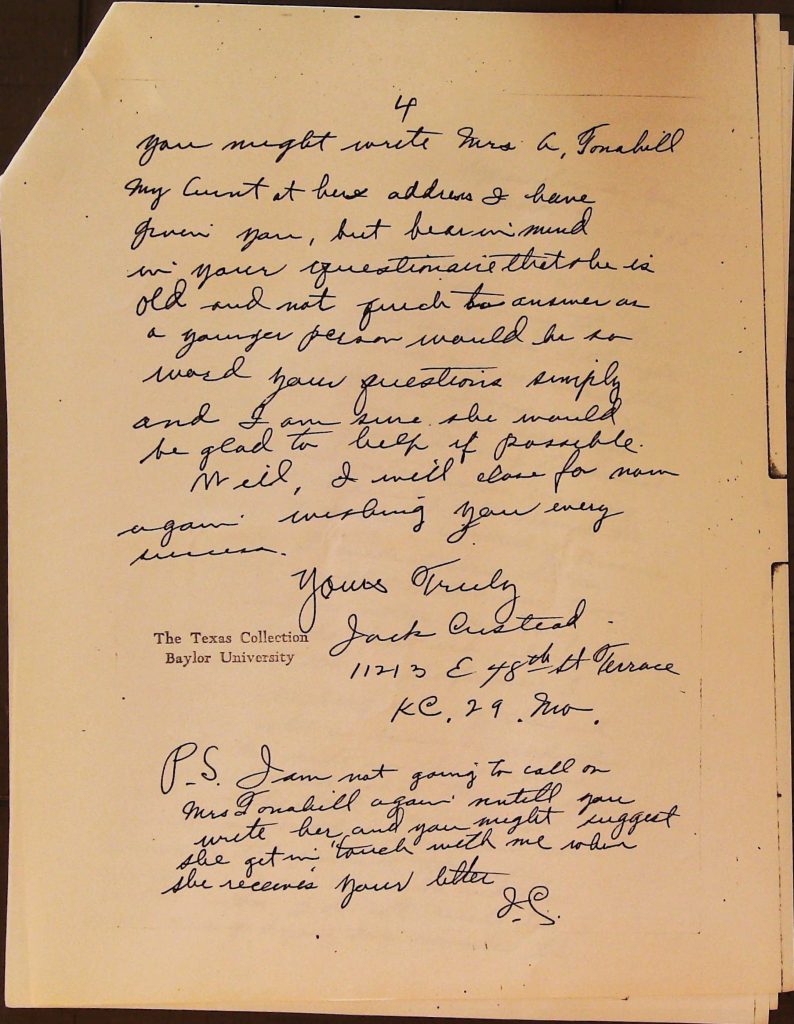 4
you might write Mrs A, Tonahill
My Aunt at her address I have
given you, but bear in mind
in your questionaire that she is
old and not quick to answer as
a younger person would be so
word your questions simply
and I am sure she would
be glad to help if possible.
Well, I will close for now
again wishing you every
success.
Yours Truly
Jack Custead
The Texas Collection
Baylor University
11213 E 48th St Terrace
KC. 29. Mo.
P.S. I am not going to call on
Mrs Tonahill again untill you
write her and you might suggest
she get in touch with me when
she receives your letter
J-C.